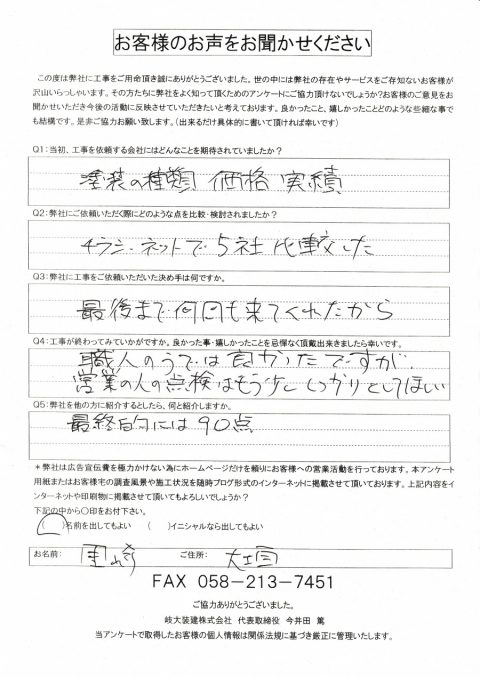 お客様のお声をお聞かせください
この度は弊社に工事をご用命頂き誠にありがとうございました。世の中には弊社の存在やサービスをご存知ないお客様が
沢山いらっしゃいます。その方たちに弊社をよく知って頂くためのアンケートにご協力頂けないでしょうか?お客様のご意見をお
聞かせいただき今後の活動に反映させていただきたいと考えております。良かったこと、嬉しかったことどのような些細な事で
も結構です。是非ご協力お願い致します。(出来るだけ具体的に書いて頂ければ幸いです)
Q1:当初、工事を依頼する会社にはどんなことを期待されていましたか?
塗装の種類 価格 実績
Q2:弊社にご依頼いただく際にどのような点を比較・検討されましたか?
チラシ・ネットで5社比較した
Q3:弊社に工事をご依頼いただいた決め手は何ですか。
最後まで何回も来てくれたから
Q4:工事が終わってみていかがですか。良かった事・嬉しかったことを忌憚なく頂戴出来きましたら幸いです。
職人のうでは良かったですが、
営業の人の点検はもう少ししっかりとしてほしい
Q5:弊社を他の方に紹介するとしたら、何と紹介しますか。
最終的には90点
*弊社は広告宣伝費を極力かけない為にホームページだけを頼りにお客様への営業活動を行っております。本アンケート
用紙またはお客様宅の調査風景や施工状況を随時ブログ形式のインターネットに掲載させて頂いております。上記内容をイ
ンターネットや印刷物に掲載させて頂いてもよろしいでしょうか?
下記の中から○印をお付下さい。
(○)名前を出してもよい ( )イニシャルなら出してもよい
お名前: 崎 ご住所: 大垣
FAX 058-213-7451
ご協力ありがとうございました。
岐大装建株式会社 代表取締役 今井田 篤
当アンケートで取得したお客様の個人情報は関係法規に基づき厳正に管理いたします。